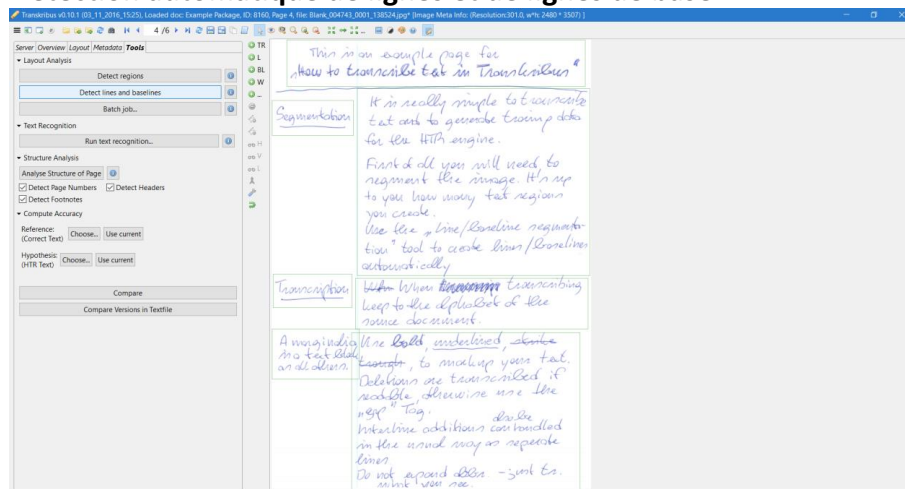 Transkribus v0.10.1 (03_11_2016_15:25), Loaded doc: Example Package, ID: 8160, Page 4, file: Blank_004743_0001_138524.jpg* [Image Meta Info: (Resolution:301.0, w*h: 2480 * 3507) ]
4 /6
Server Overview Layout Metadata Tools
Layout Analysis
Detect regions
Detect lines and baselines
Batch job...
Text Recognition
Run text recognition...
Structure Analysis
Analyse Structure of Page
Detect Page Numbers Detect Headers
Detect Footnotes
Compute Accuracy
Reference:
(Correct Text) Choose... Use current
Hypothesis:
(HTR Text) Choose... Use current
Compare
Compare Versions in Textfile
TR
L
BL
W
...
H
V
L
This is an example page for
„How to transcribe text in Transkribus"
Segmentation
It is really simple to transcribe
text and to generate training data
for the HTR engine.
First of all you will need to
segment the image. It's up
to you how many text regions
you create.
Use the „line/baseline segmenta-
tion" tool to create lines/baselines
automatically
Transcription
When transcribing
keep to the alphabet of the
source document.
A marginalia
is a text block
as all others.
Use bold, underlined, strike
trough, to markup your text.
Deletions are transcribed if
readable, otherwise use the
„gap" Tag.
also be
Interline additions can handled
in the usual way as seperate
lines
Do not expand abbr. - just tr.
what you see.